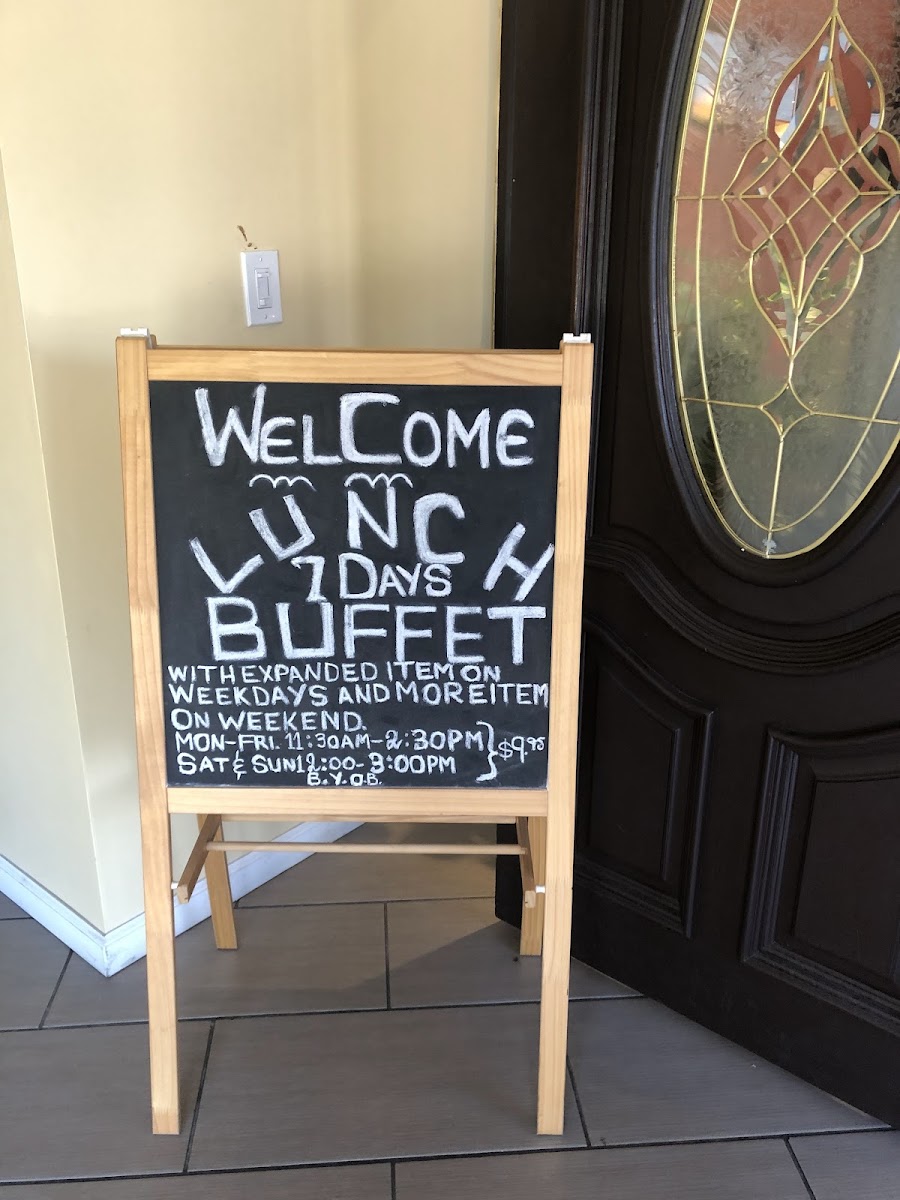 WELCOME
LUNCH
7 DAYS
BUFFET
WITH EXPANDED ITEM ON
WEEKDAYS AND MORE ITEM
ON WEEKEND.
MON-FRI. 11:30AM-2:30PM } $9.95
SAT & SUN 12:00-3:00PM
B.Y.O.B.